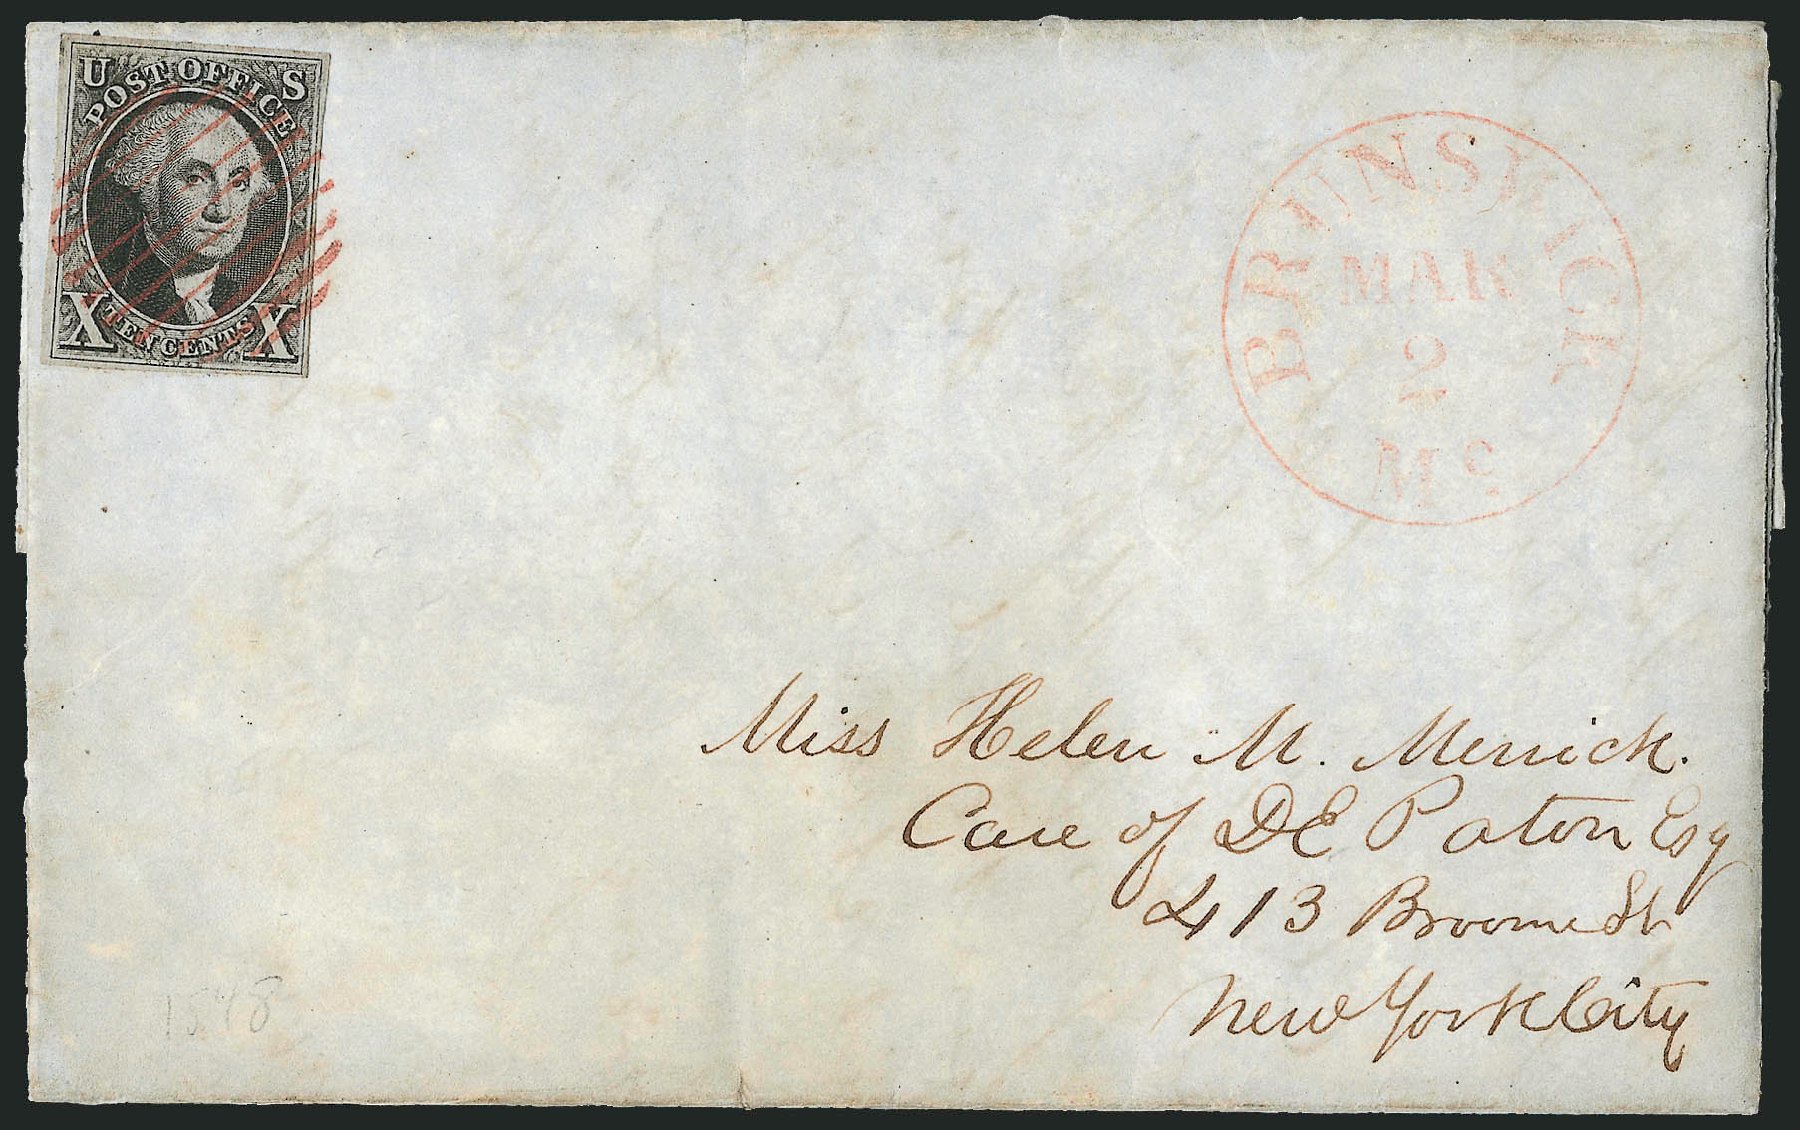 U S
POST OFFICE
X TEN CENTS X
BRUNSWICK
MAR
2
Me
Miss Helen M. Merrick.
Care of D E Paton Esq
413 Broome St
New York City
1848